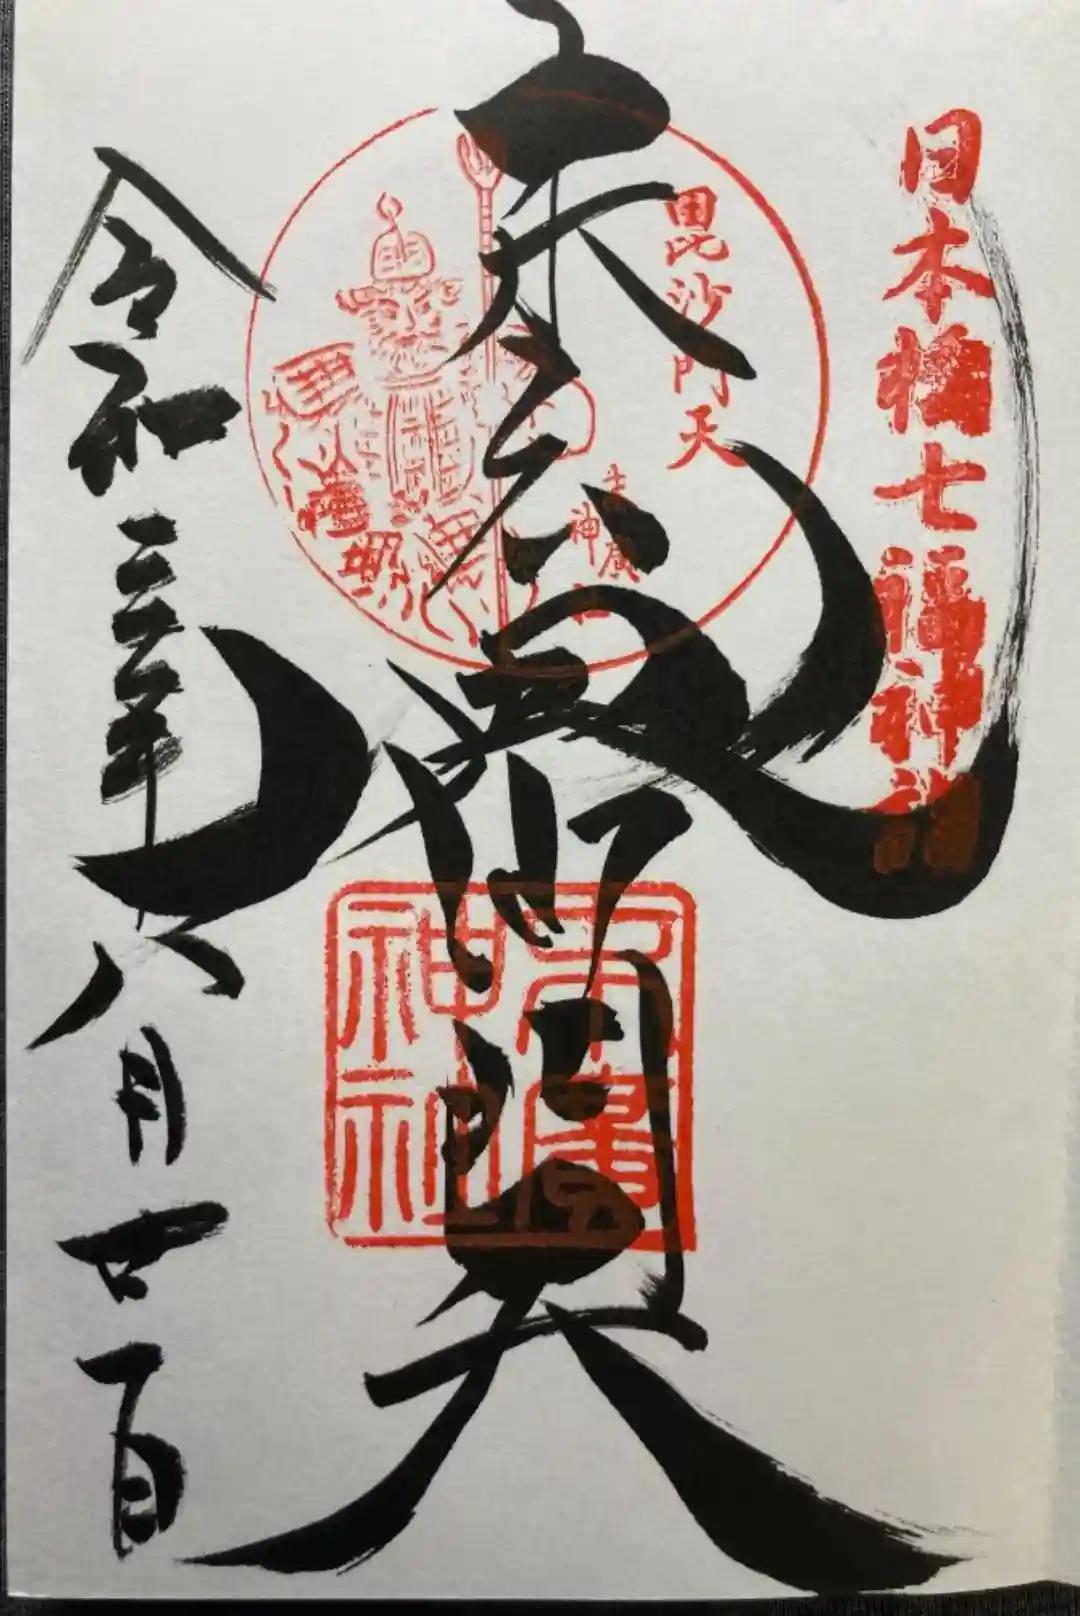 日本橋七福神詣
毘沙門天
末廣
神社
末広毘沙門天
末廣
神社
令和三年八月廿一日